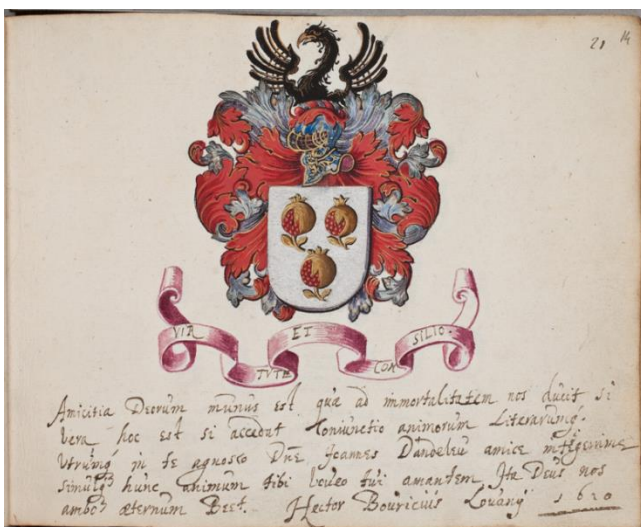 21 14
VIR TVTE ET CON SILIO.
Amicitia Deorum munus est qua ad immortalitatem nos ducit si
vera hoc est si accedat Coniunctio animorum Literarumq3
Utrumq3 in te agnosco Dñe Joannes Dandeleu amice integerrime
simulq3 hunc animum tibi tui amantem Ita Deus nos
ambos æternum Beet. Hector Bouricius Lovanij 1620